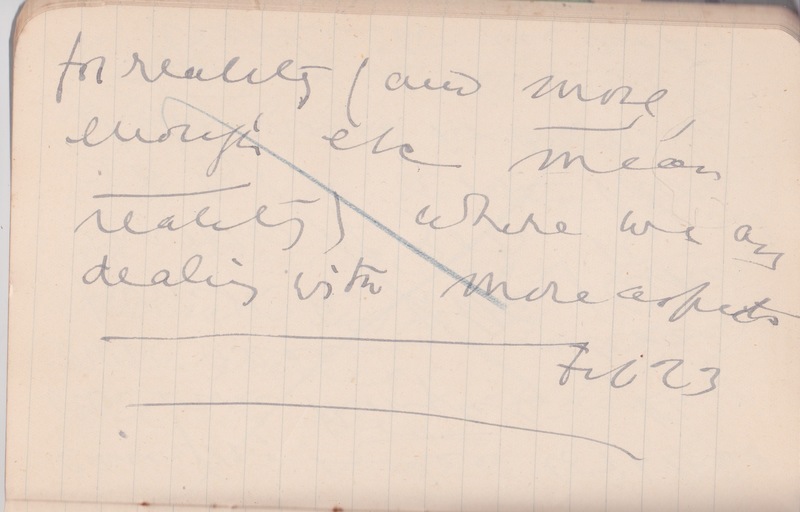 for reality (and more,
enough etc mean
reality) where we are
dealing with more aspects
Feb 23